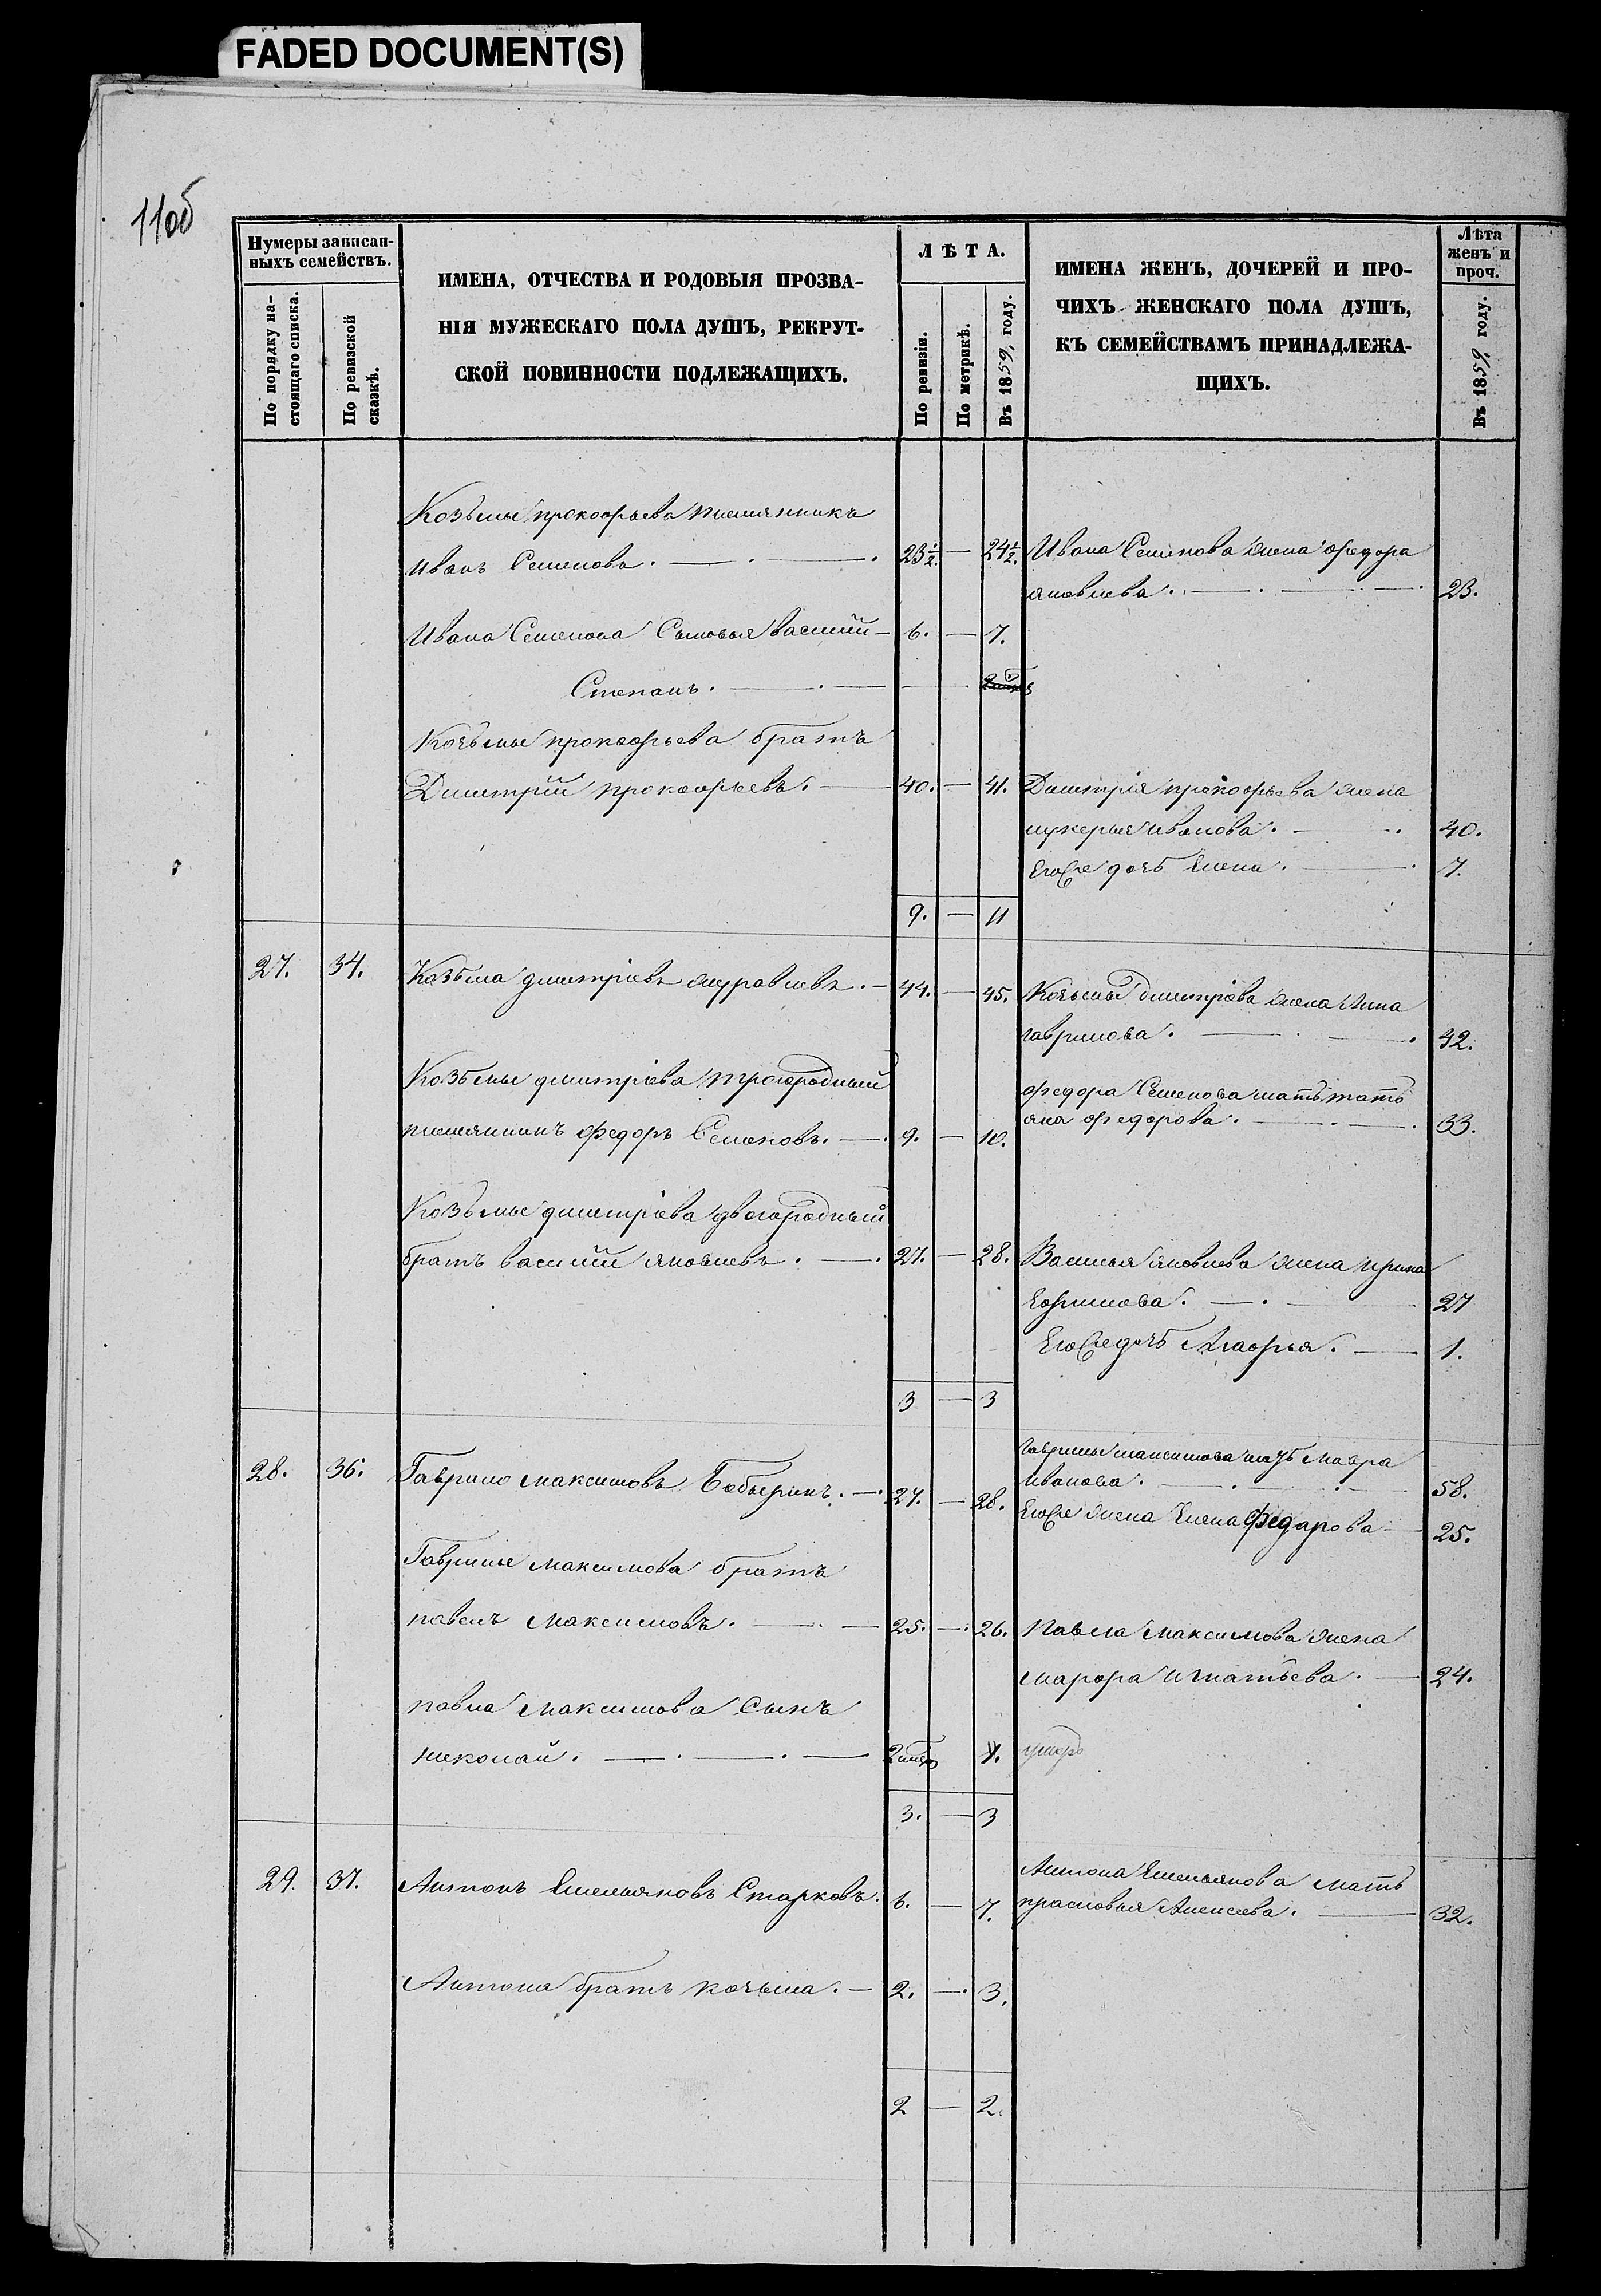 FADED DOCUMENT(S)
110б
Нумеры записан-
ныхъ семействъ.
По порядку на-
стоящаго списка.
По ревизской
сказкѣ.
ИМЕНА, ОТЧЕСТВА И РОДОВЫЯ ПРОЗВА-
НІЯ МУЖЕСКАГО ПОЛА ДУШЪ, РЕКРУТ-
СКОЙ ПОВИННОСТИ ПОДЛЕЖАЩИХЪ.
ЛѢТА.
По ревизіи.
По метрикѣ.
Въ 1859, году.
ИМЕНА ЖЕНЪ, ДОЧЕРЕЙ И ПРО-
ЧИХЪ ЖЕНСКАГО ПОЛА ДУШЪ,
КЪ СЕМЕЙСТВАМЪ ПРИНАДЛЕЖА-
ЩИХЪ.
Лѣта
женъ и
проч.
Въ 1859, году.
Козьмы прокофьева племянникъ
Иванъ Семеновъ. 23½. — 24½. Ивана Семенова жена федора
яковлева. 23.
Ивана Семенова Сыновья василій — 6. — 7.
Степанъ.
Козьмы прокофьева братъ
Дмитрій прокофьевъ. 40. — 41. Дмитрія прокофьева жена
лукерья иванова. 40.
Его же дочь Елена. 7.
9. — 11
27. 34. Козьма дмитріевъ журавлевъ. 44. — 45. Козьмы дмитріева жена Анна
гаврилова. 42.
Козьмы дмитріева троюродный федора Семенова мать тать
яна федорова. 33.
племянникъ федоръ Семеновъ. 9. — 10.
Козьмы дмитріева двоюродный
братъ василій яковлевъ. 27. — 28. Василья яковлева жена ирина
Ефимова. 27
Его же дочь Агафья. 1.
3 — 3
28. 36. Гаврило максимовъ Бобыринъ. 27. — 28. Гаврилы максимова мать Мавра
Иванова. 58.
Его же жена Елена Федарова 25.
Гаврилы максимова братъ
павелъ Максимовъ. 25. — 26. Павла Максимова жена
марфа игнатьева. 24.
павла максимова Сынъ
николай. 1. умеръ
3. — 3
29. 37. Антонъ Емельяновъ Старковъ. 6. — 7. Антона Емельянова мать
прасковья Алексеева. 32.
Антона братъ козьма. — 2. — 3.
2 — 2.